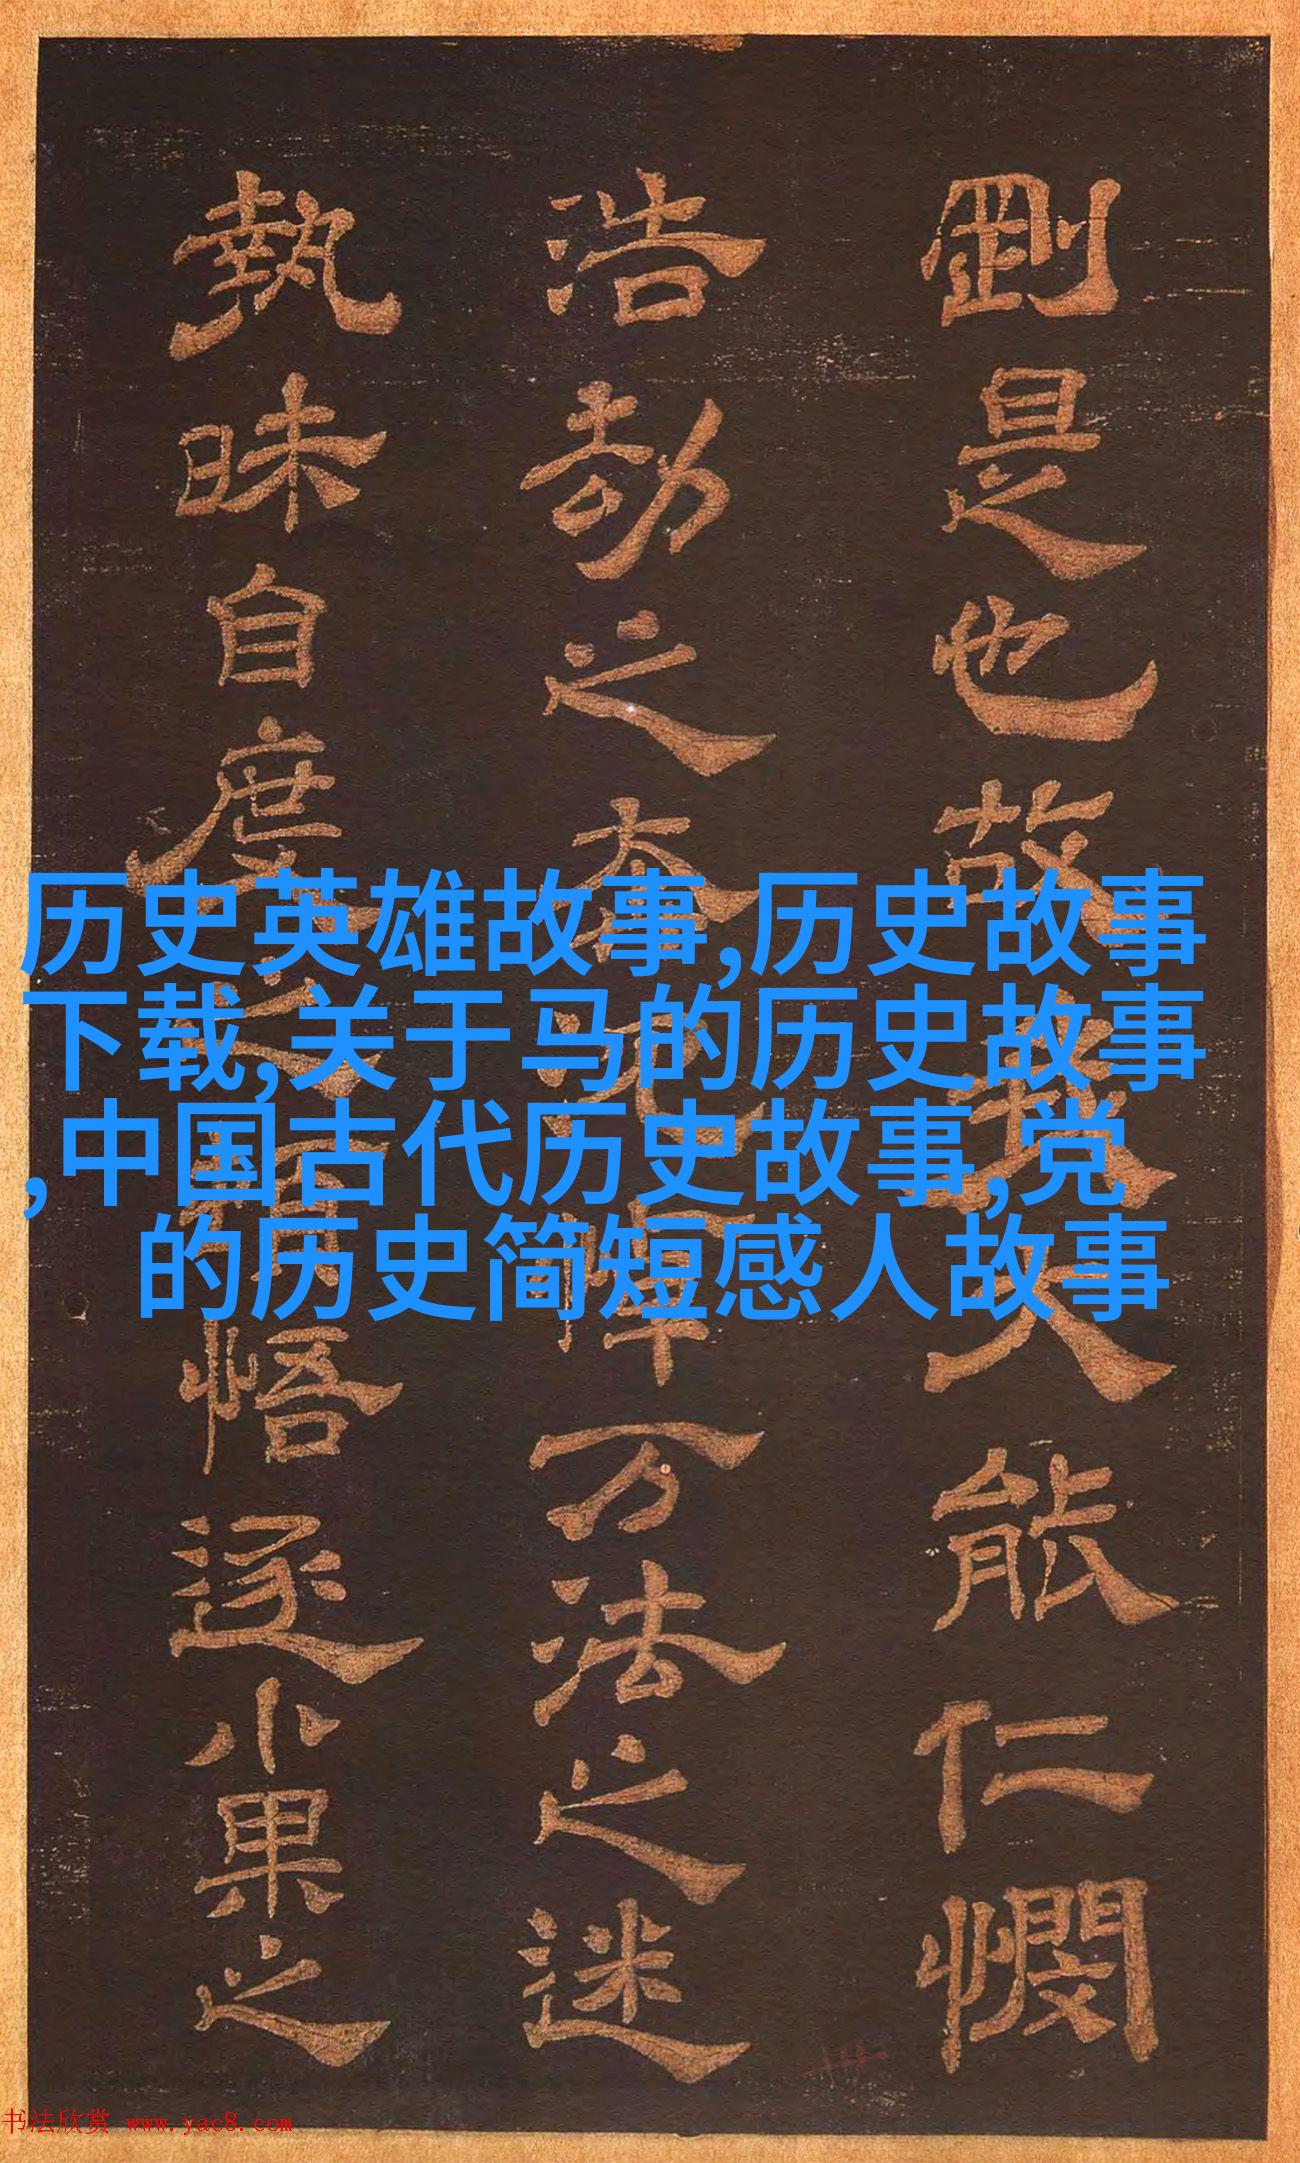 剛是也故我大能仁憫
浩劫之悼万法之迷
執昧自度之悟逐小果之
历史英雄故事,历史故事
下载,关于马的历史故事
,中国古代历史故事,党
的历史简短感人故事
书法欣赏 www.yac8.com